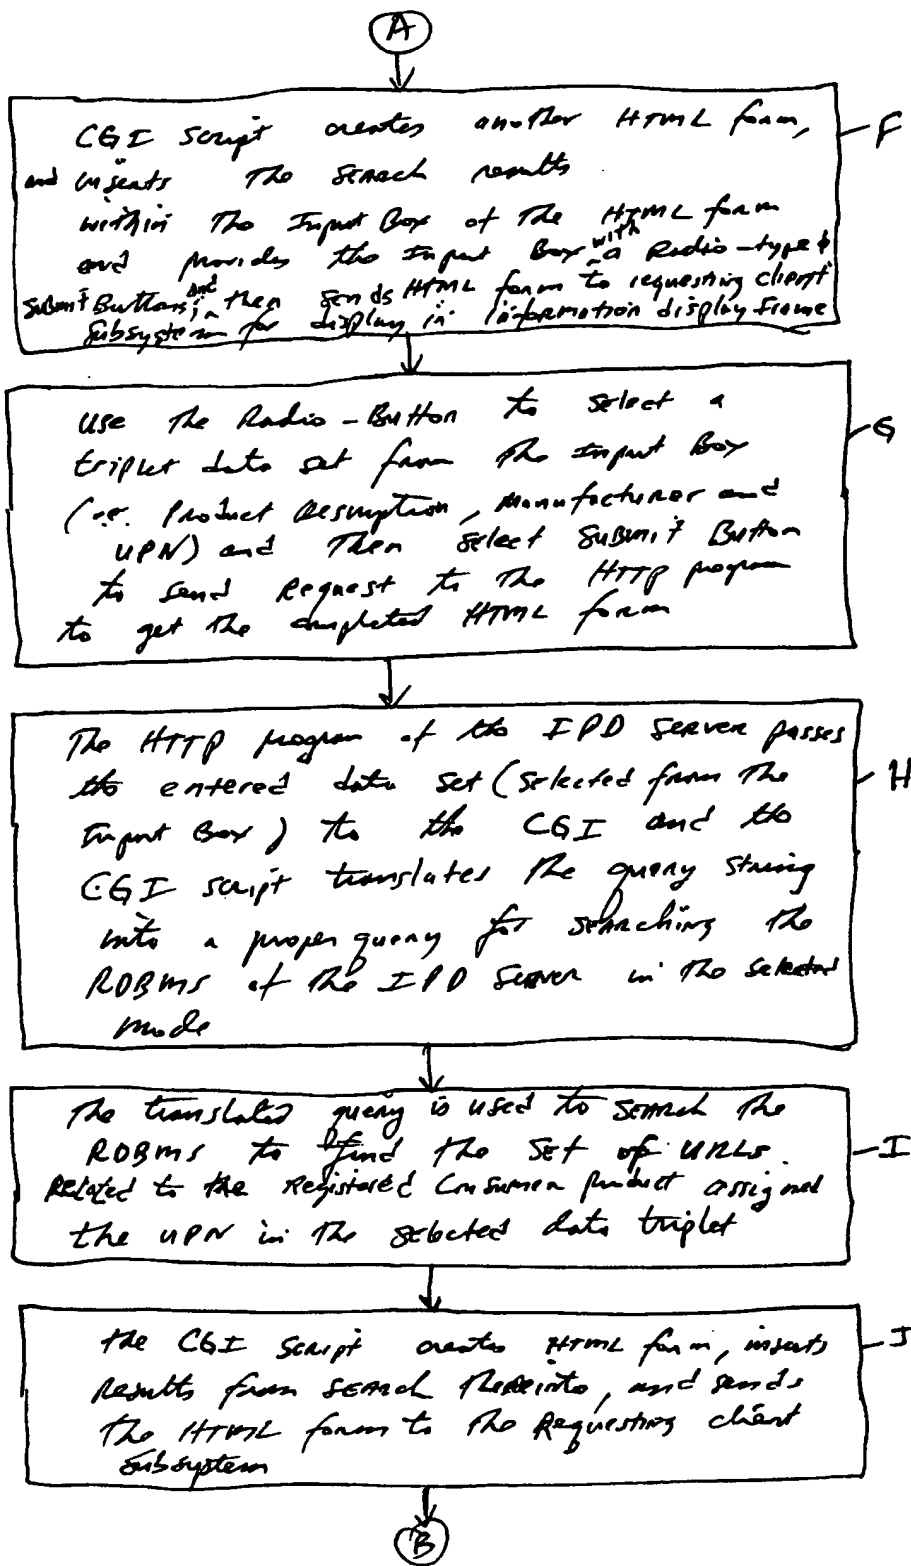 A
CGI Script creates another HTML form, F
and inserts the search results
within the Input Box of the HTML form
and provides the Input Box with a Radio-type &
Submit Buttons; and then sends HTML form to requesting client
subsystem for display in information display frame
use the Radio-Button to select a
triplet data set from the Input Box G
(i.e. Product Description, Manufacturer and
UPN) and then select submit Button
to send Request to the HTTP program
to get the completed HTML form
The HTTP program of the IPD Server passes
the entered data set (selected from the H
Input Box) to the CGI and the
CGI script translates the query string
into a proper query for searching the
RDBMS of the IPD Server in the selected
mode
The translated query is used to search the
RDBMS to find the set of URLs I
Related to the Registered Consumer product assigned
the UPN in the selected data triplet
the CGI Script creates HTML form, inserts J
Results from search thereinto, and sends
the HTML form to the Requesting client
subsystem
B